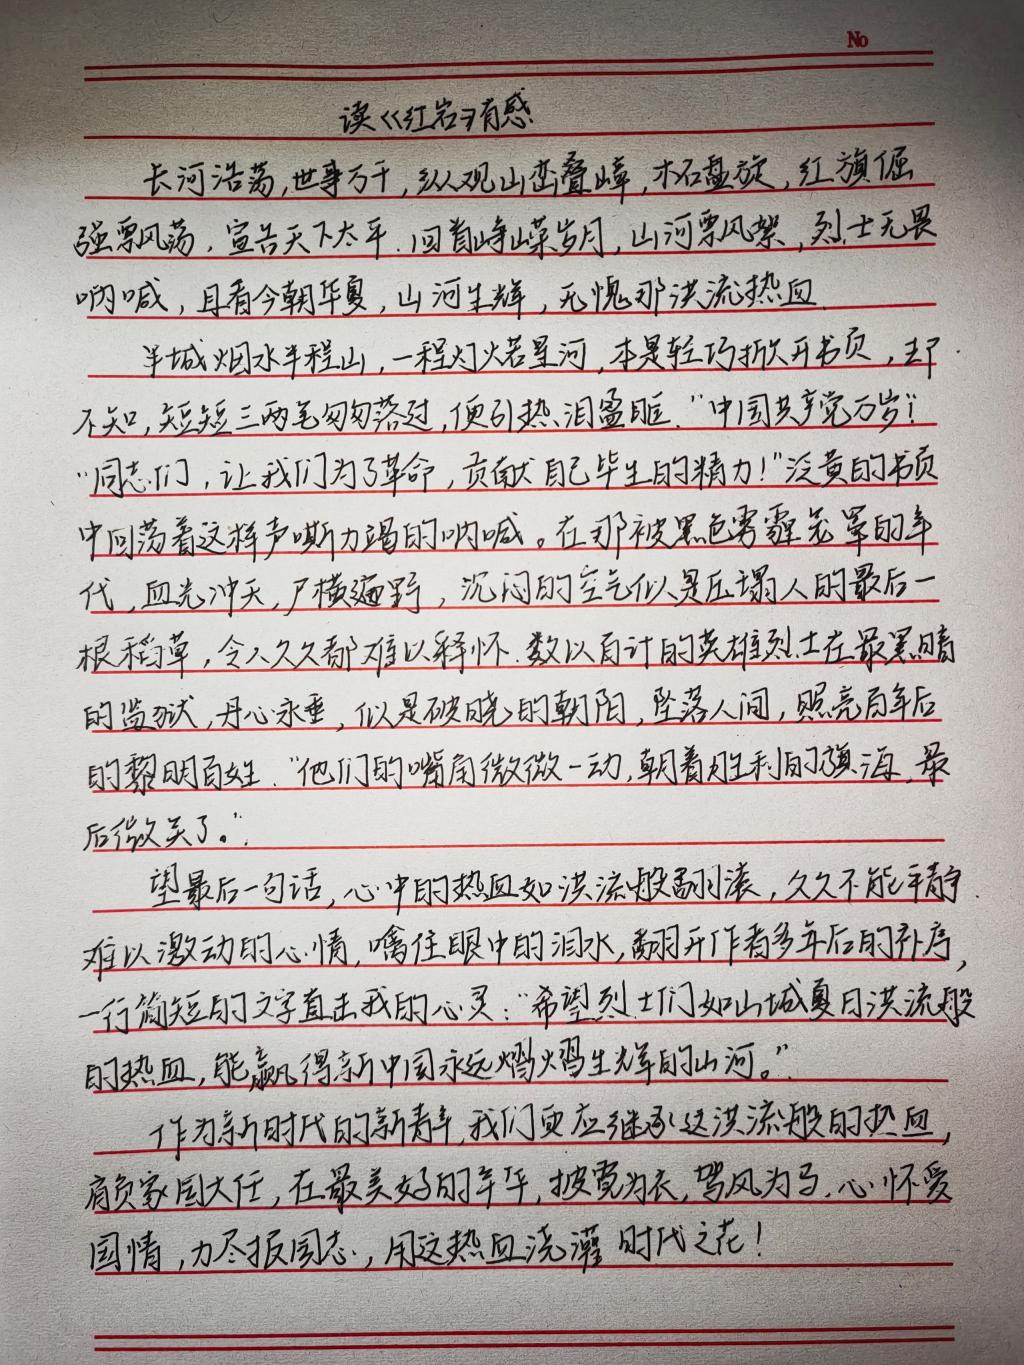 No
读《红岩》有感
长河浩荡,世事万千,纵观山峦叠嶂,木石盘旋,红旗倔
强飘风荡,宣告天下太平.回首峥嵘岁月,山河飘风絮,烈士无畏
呐喊,且看今朝华夏,山河生辉,无愧那洪流热血.
半城烟水半程山,一程灯火若星河,本是轻巧掀开书页,却
不知,短短三两笔匆匆落过,便引热泪盈眶."中国共产党万岁"!
"同志们,让我们为了革命,贡献自己毕生的精力!"泛黄的书页
中回荡着这样声嘶力竭的呐喊。在那被黑色雾霾笼罩的年
代,血光冲天,尸横遍野,沉闷的空气似是压塌人的最后一
根稻草,令人久久都难以释怀.数以百计的英雄烈士在最黑暗
的监狱,丹心永垂,似是破晓的朝阳,坠落人间,照亮百年后
的黎明百姓."他们的嘴角微微一动,朝着胜利的旗海,最
后微笑了。".
望最后一句话,心中的热血如洪流般翻滚,久久不能平静.
难以激动的心情,噙住眼中的泪水,翻开作者多年后的补序,
一行简短的文字直击我的心灵:"希望烈士们如山城夏日洪流般
的热血,能赢得新中国永远熠熠生辉的山河。".
作为新时代的新青年,我们更应继承这洪流般的热血,
肩负家国大任,在最美好的年华,披霓为衣,驾风为马.心怀爱
国情,力尽报国志,用这热血浇灌时代之花!